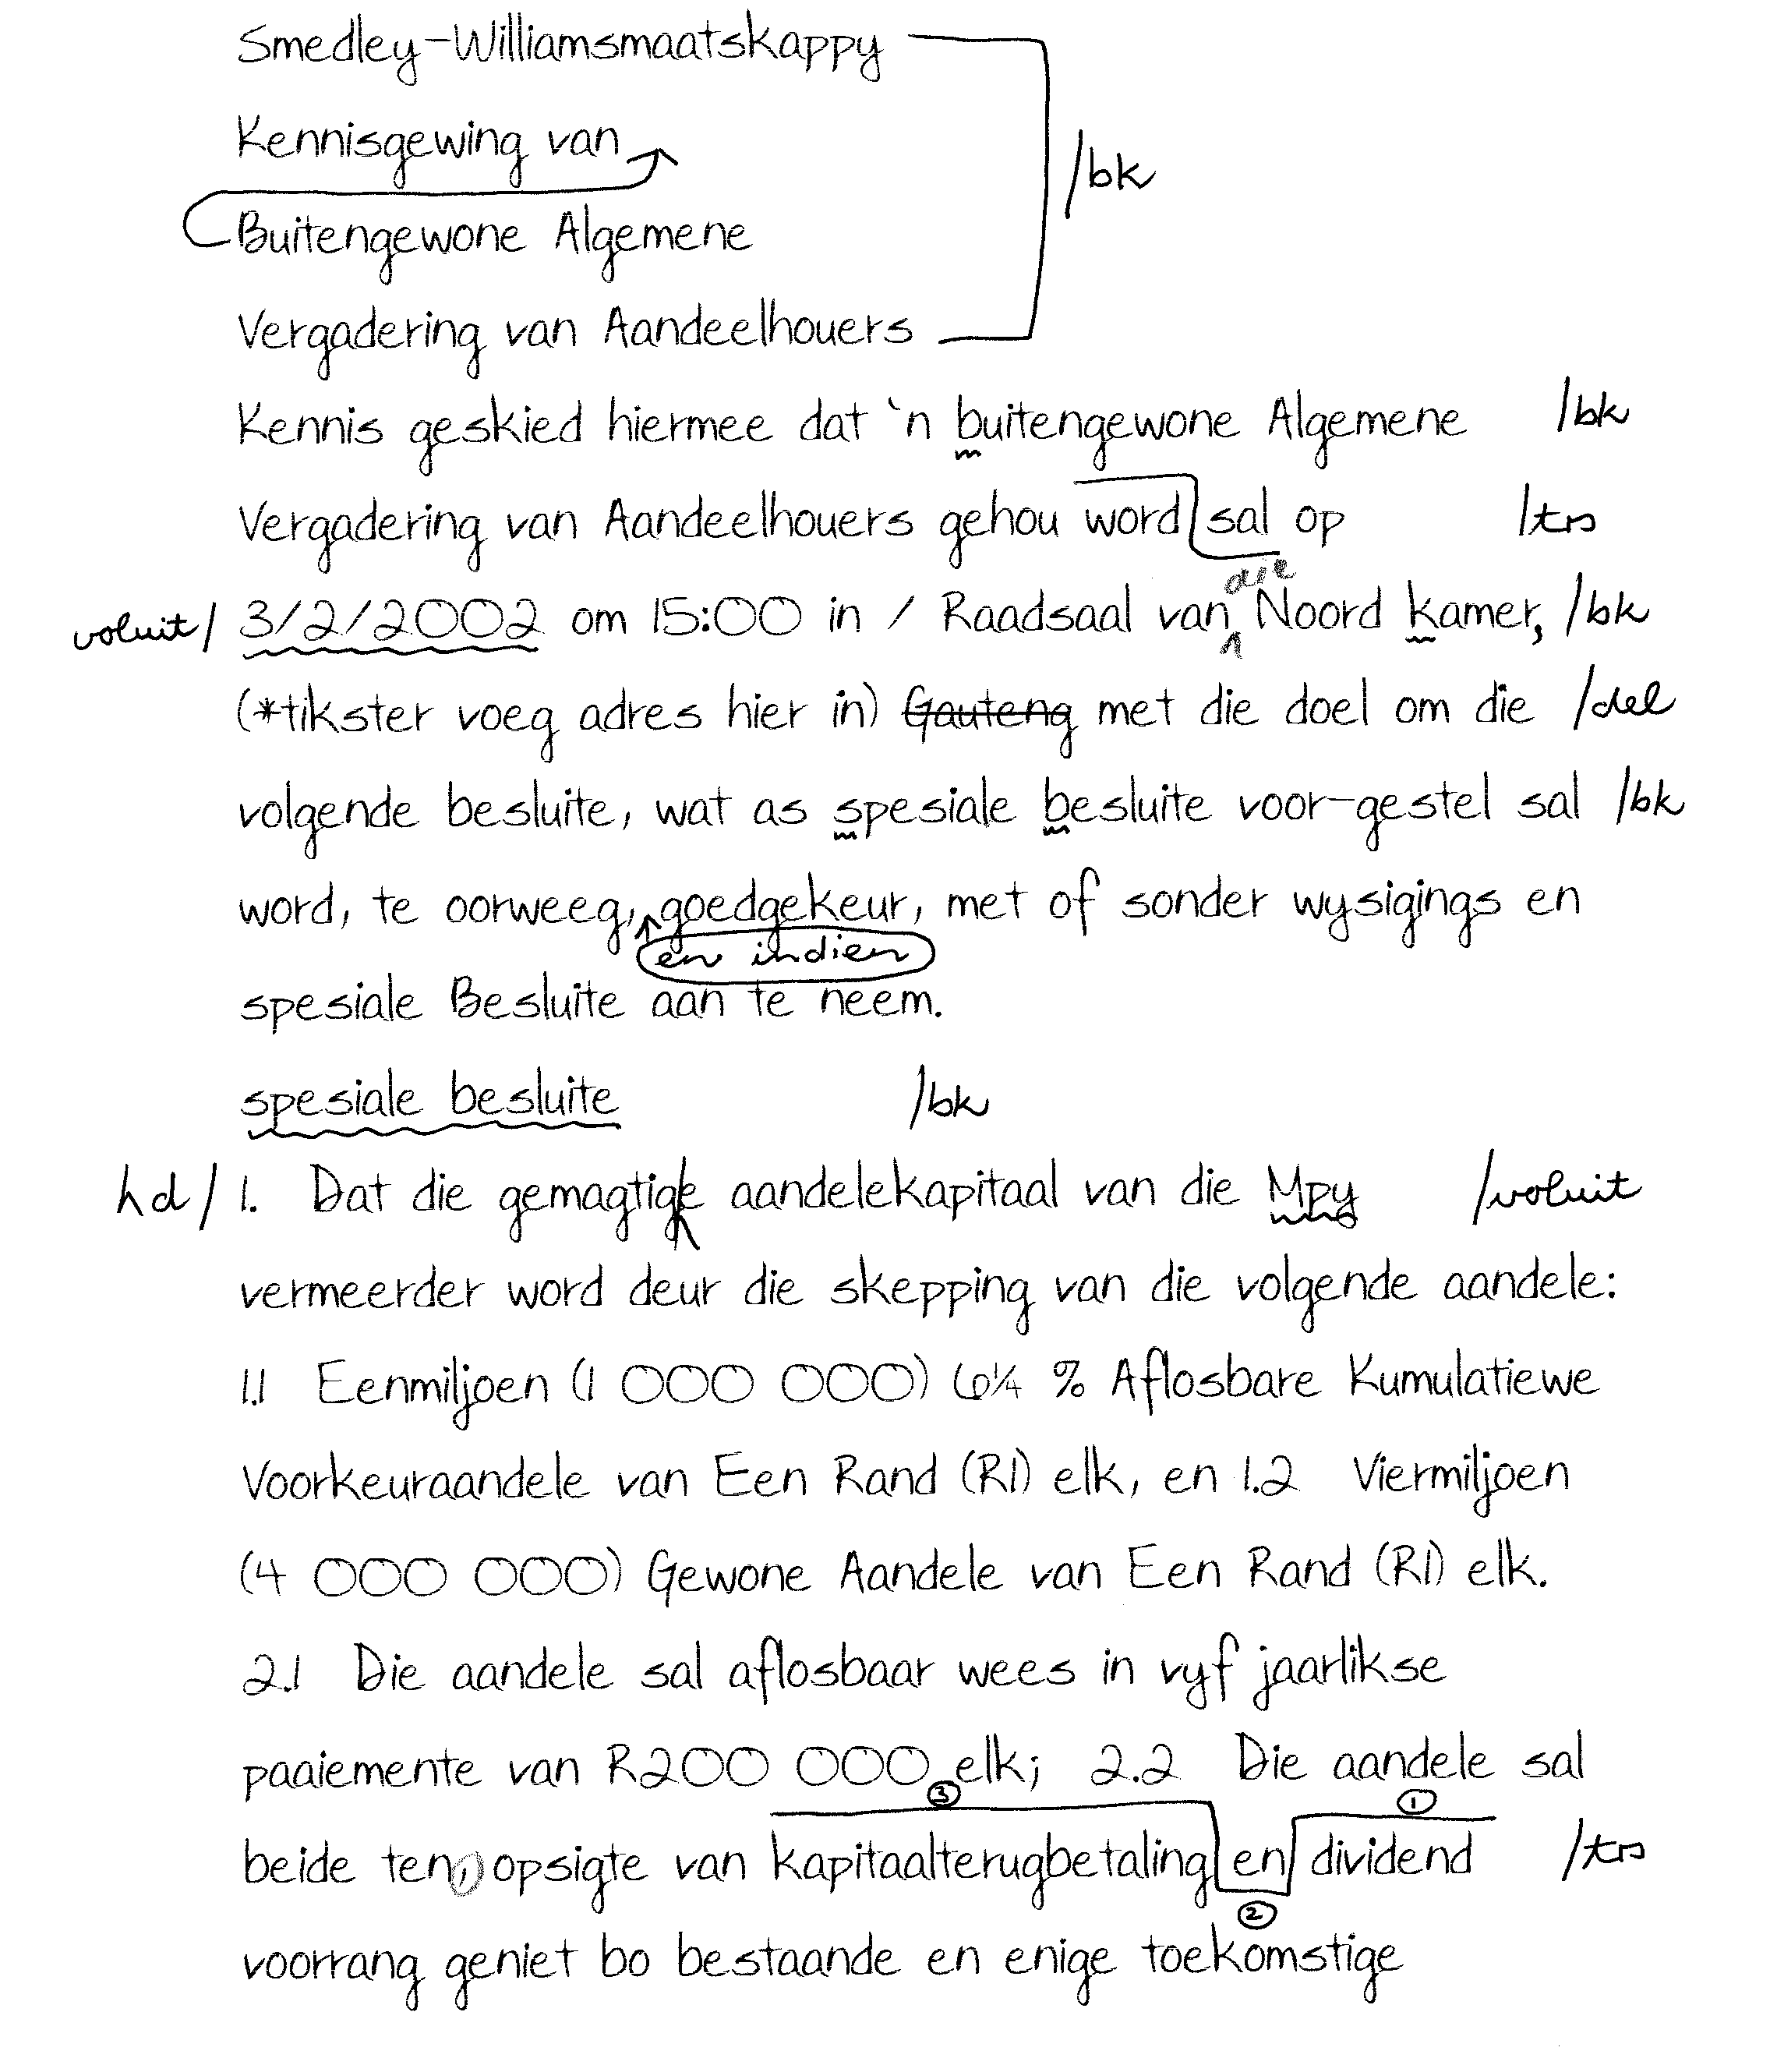 Smedley-Williamsmaatskappy
Kennisgewing van
/bk
Buitengewone Algemene
Vergadering van Aandeelhouers
Kennis geskied hiermee dat 'n buitengewone Algemene /bk
Vergadering van Aandeelhouers gehou word sal op /trs
die
voluit/ 3/2/2002 om 15:00 in / Raadsaal van Noord kamer, /bk
(*tikster voeg adres hier in) Gauteng met die doel om die /del
volgende besluite, wat as spesiale besluite voor-gestel sal /bk
word, te oorweeg, goedgekeur, met of sonder wysigings en
en indien
spesiale Besluite aan te neem.
spesiale besluite /bk
hd/ 1. Dat die gemagtigde aandelekapitaal van die Mpy /voluit
vermeerder word deur die skepping van die volgende aandele:
1.1 Eenmiljoen (1 000 000) 6¼ % Aflosbare Kumulatiewe
Voorkeuraandele van Een Rand (R1) elk, en 1.2 Viermiljoen
(4 000 000) Gewone Aandele van Een Rand (R1) elk.
2.1 Die aandele sal aflosbaar wees in vyf jaarlikse
paaiemente van R200 000 elk; 2.2 Die aandele sal
3 1
beide ten, opsigte van kapitaalterugbetaling en dividend /trs
2
voorrang geniet bo bestaande en enige toekomstige